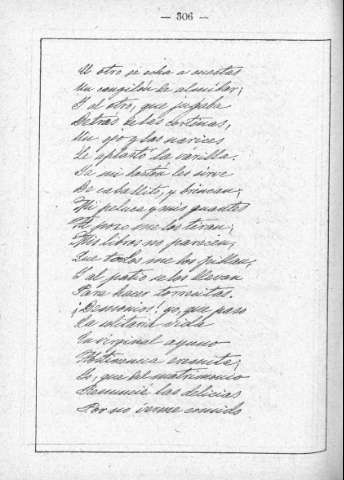 — 306 —
El otro se echa a cuestas
Un cangilón de almíbar;
I el otro, que jugaba
Detrás de las cortinas,
Un ojo y las narices
Le aplastó la varilla.
De mi bastón les sirve
De caballito, y brincan;
Mi peluca y mis guantes
Al pozo me los tiran;
Mis libros no parecen,
Que todos me los pillan,
I al patio se los llevan
Para hacer torrecitas.
¡Demonios! yo, que paso
La solitaria vida
En virginal ayuno
Abstinencia eremita;
Yo, que del matrimonio
Renuncié las delicias
Por no verme comido